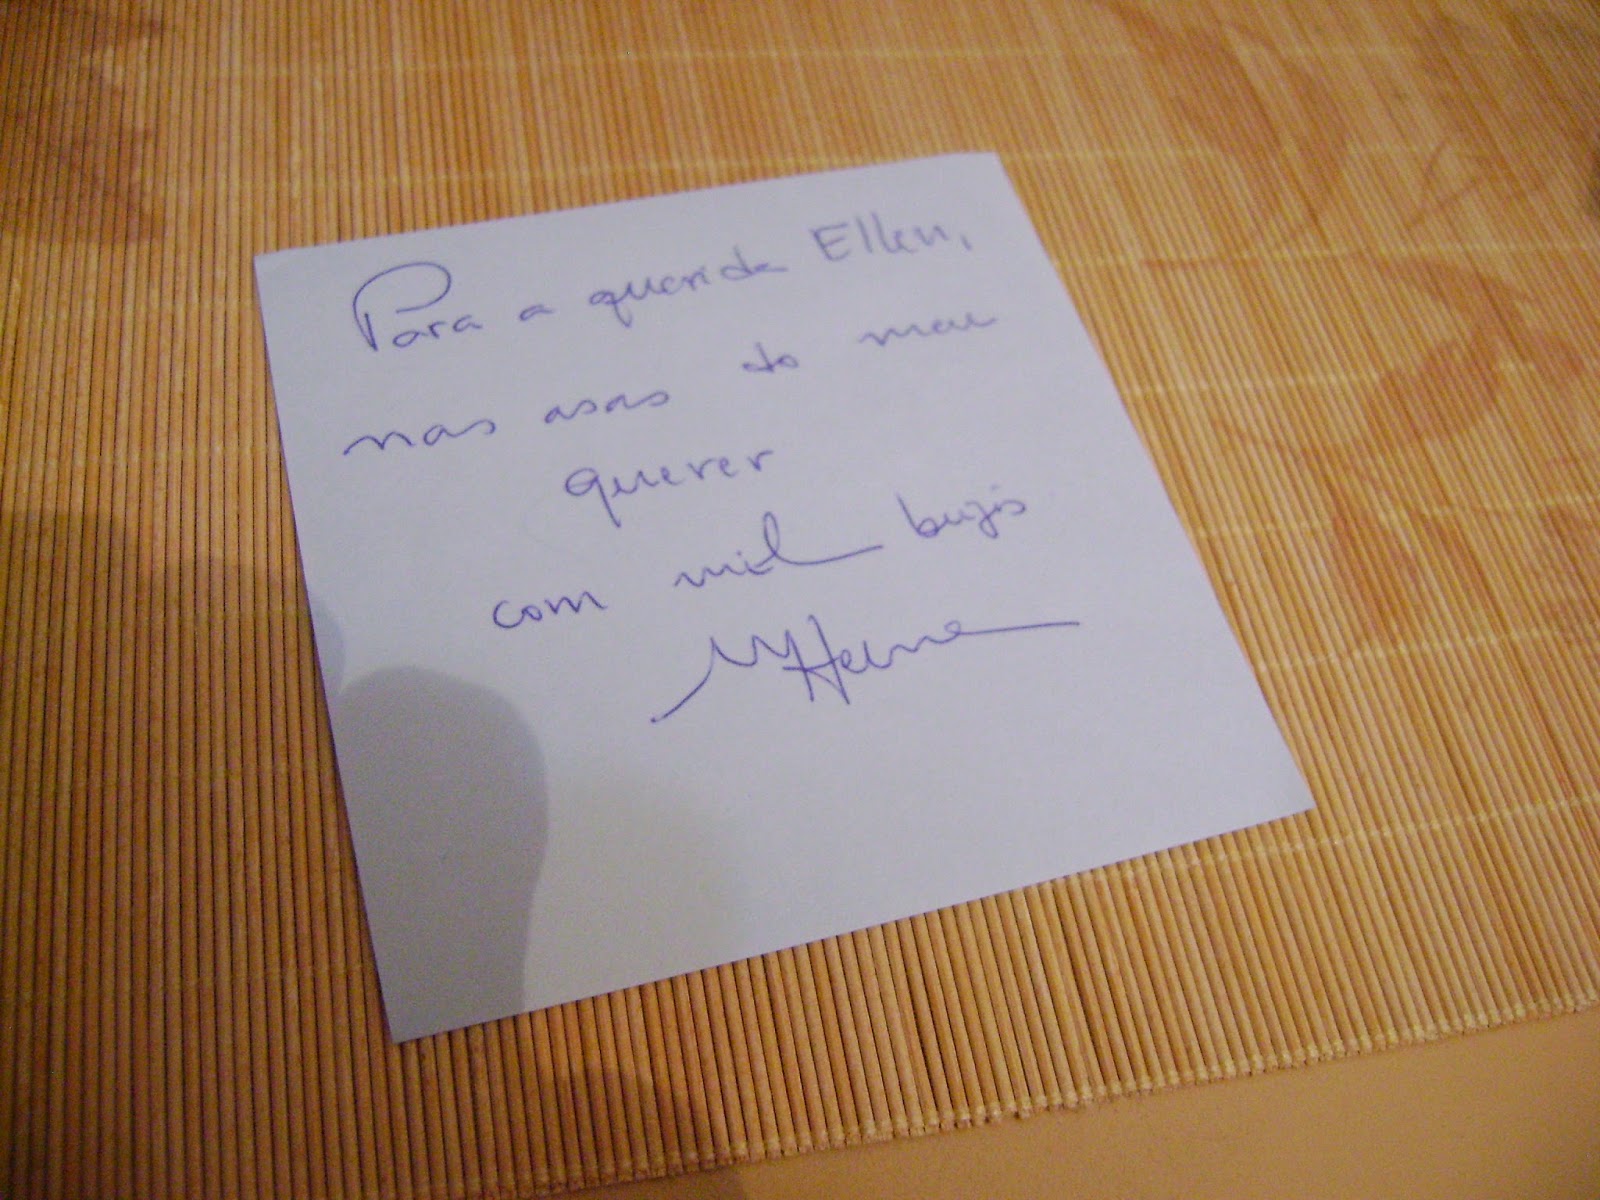 Para a querida Ellen,
nas asas do meu
querer
com mil beijos
MHelena